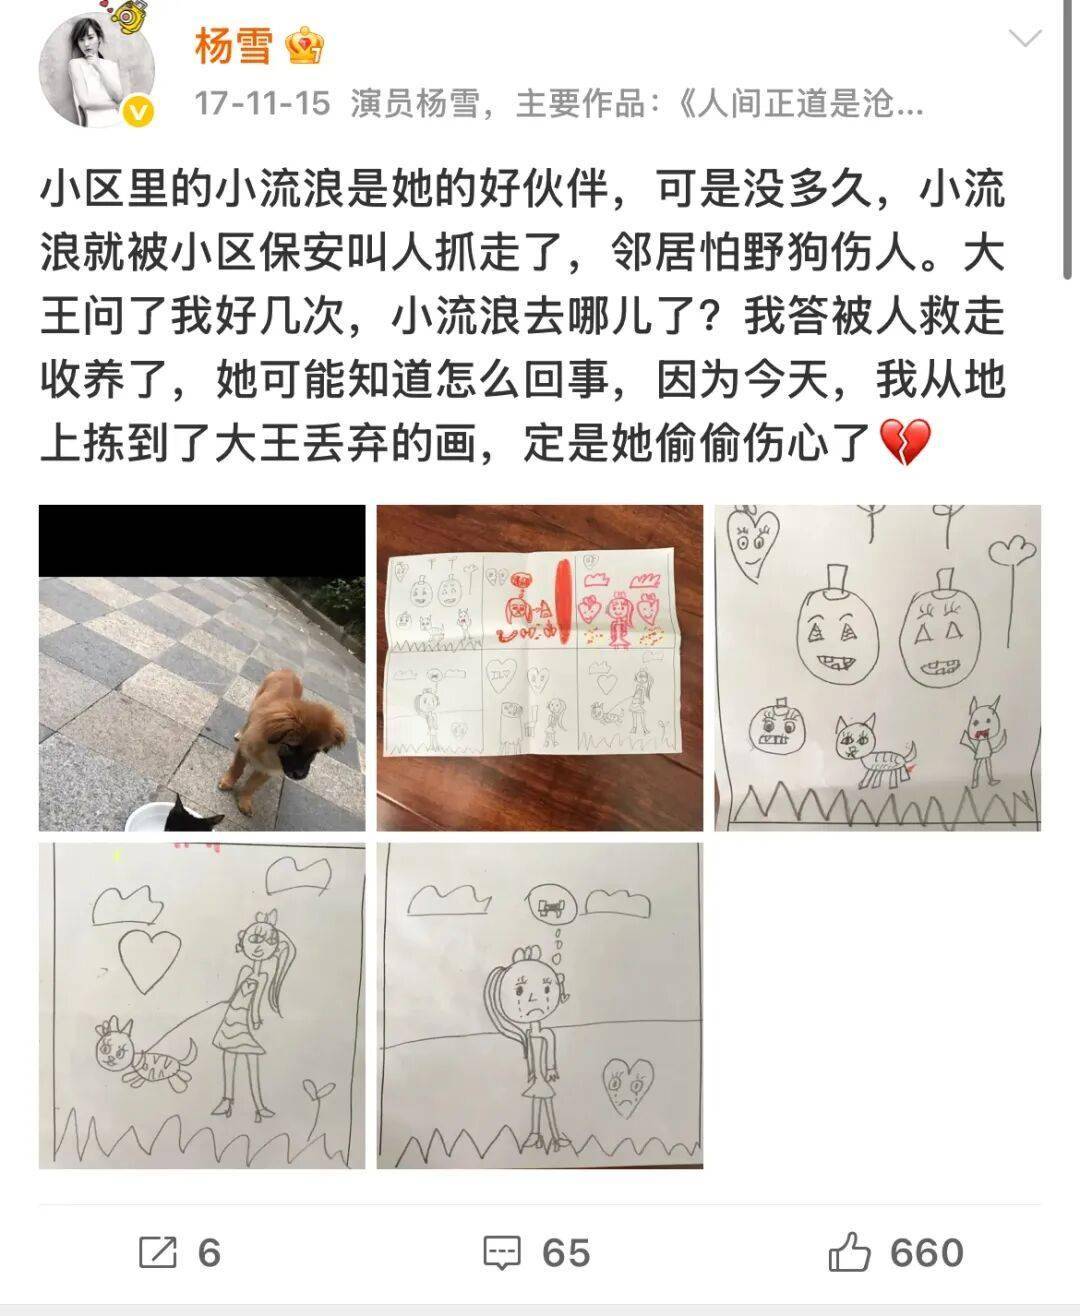 杨雪
17-11-15 演员杨雪，主要作品：《人间正道是沧...
小区里的小流浪是她的好伙伴，可是没多久，小流
浪就被小区保安叫人抓走了，邻居怕野狗伤人。大
王问了我好几次，小流浪去哪儿了？我答被人救走
收养了，她可能知道怎么回事，因为今天，我从地
上拣到了大王丢弃的画，定是她偷偷伤心了💔
6
65
660